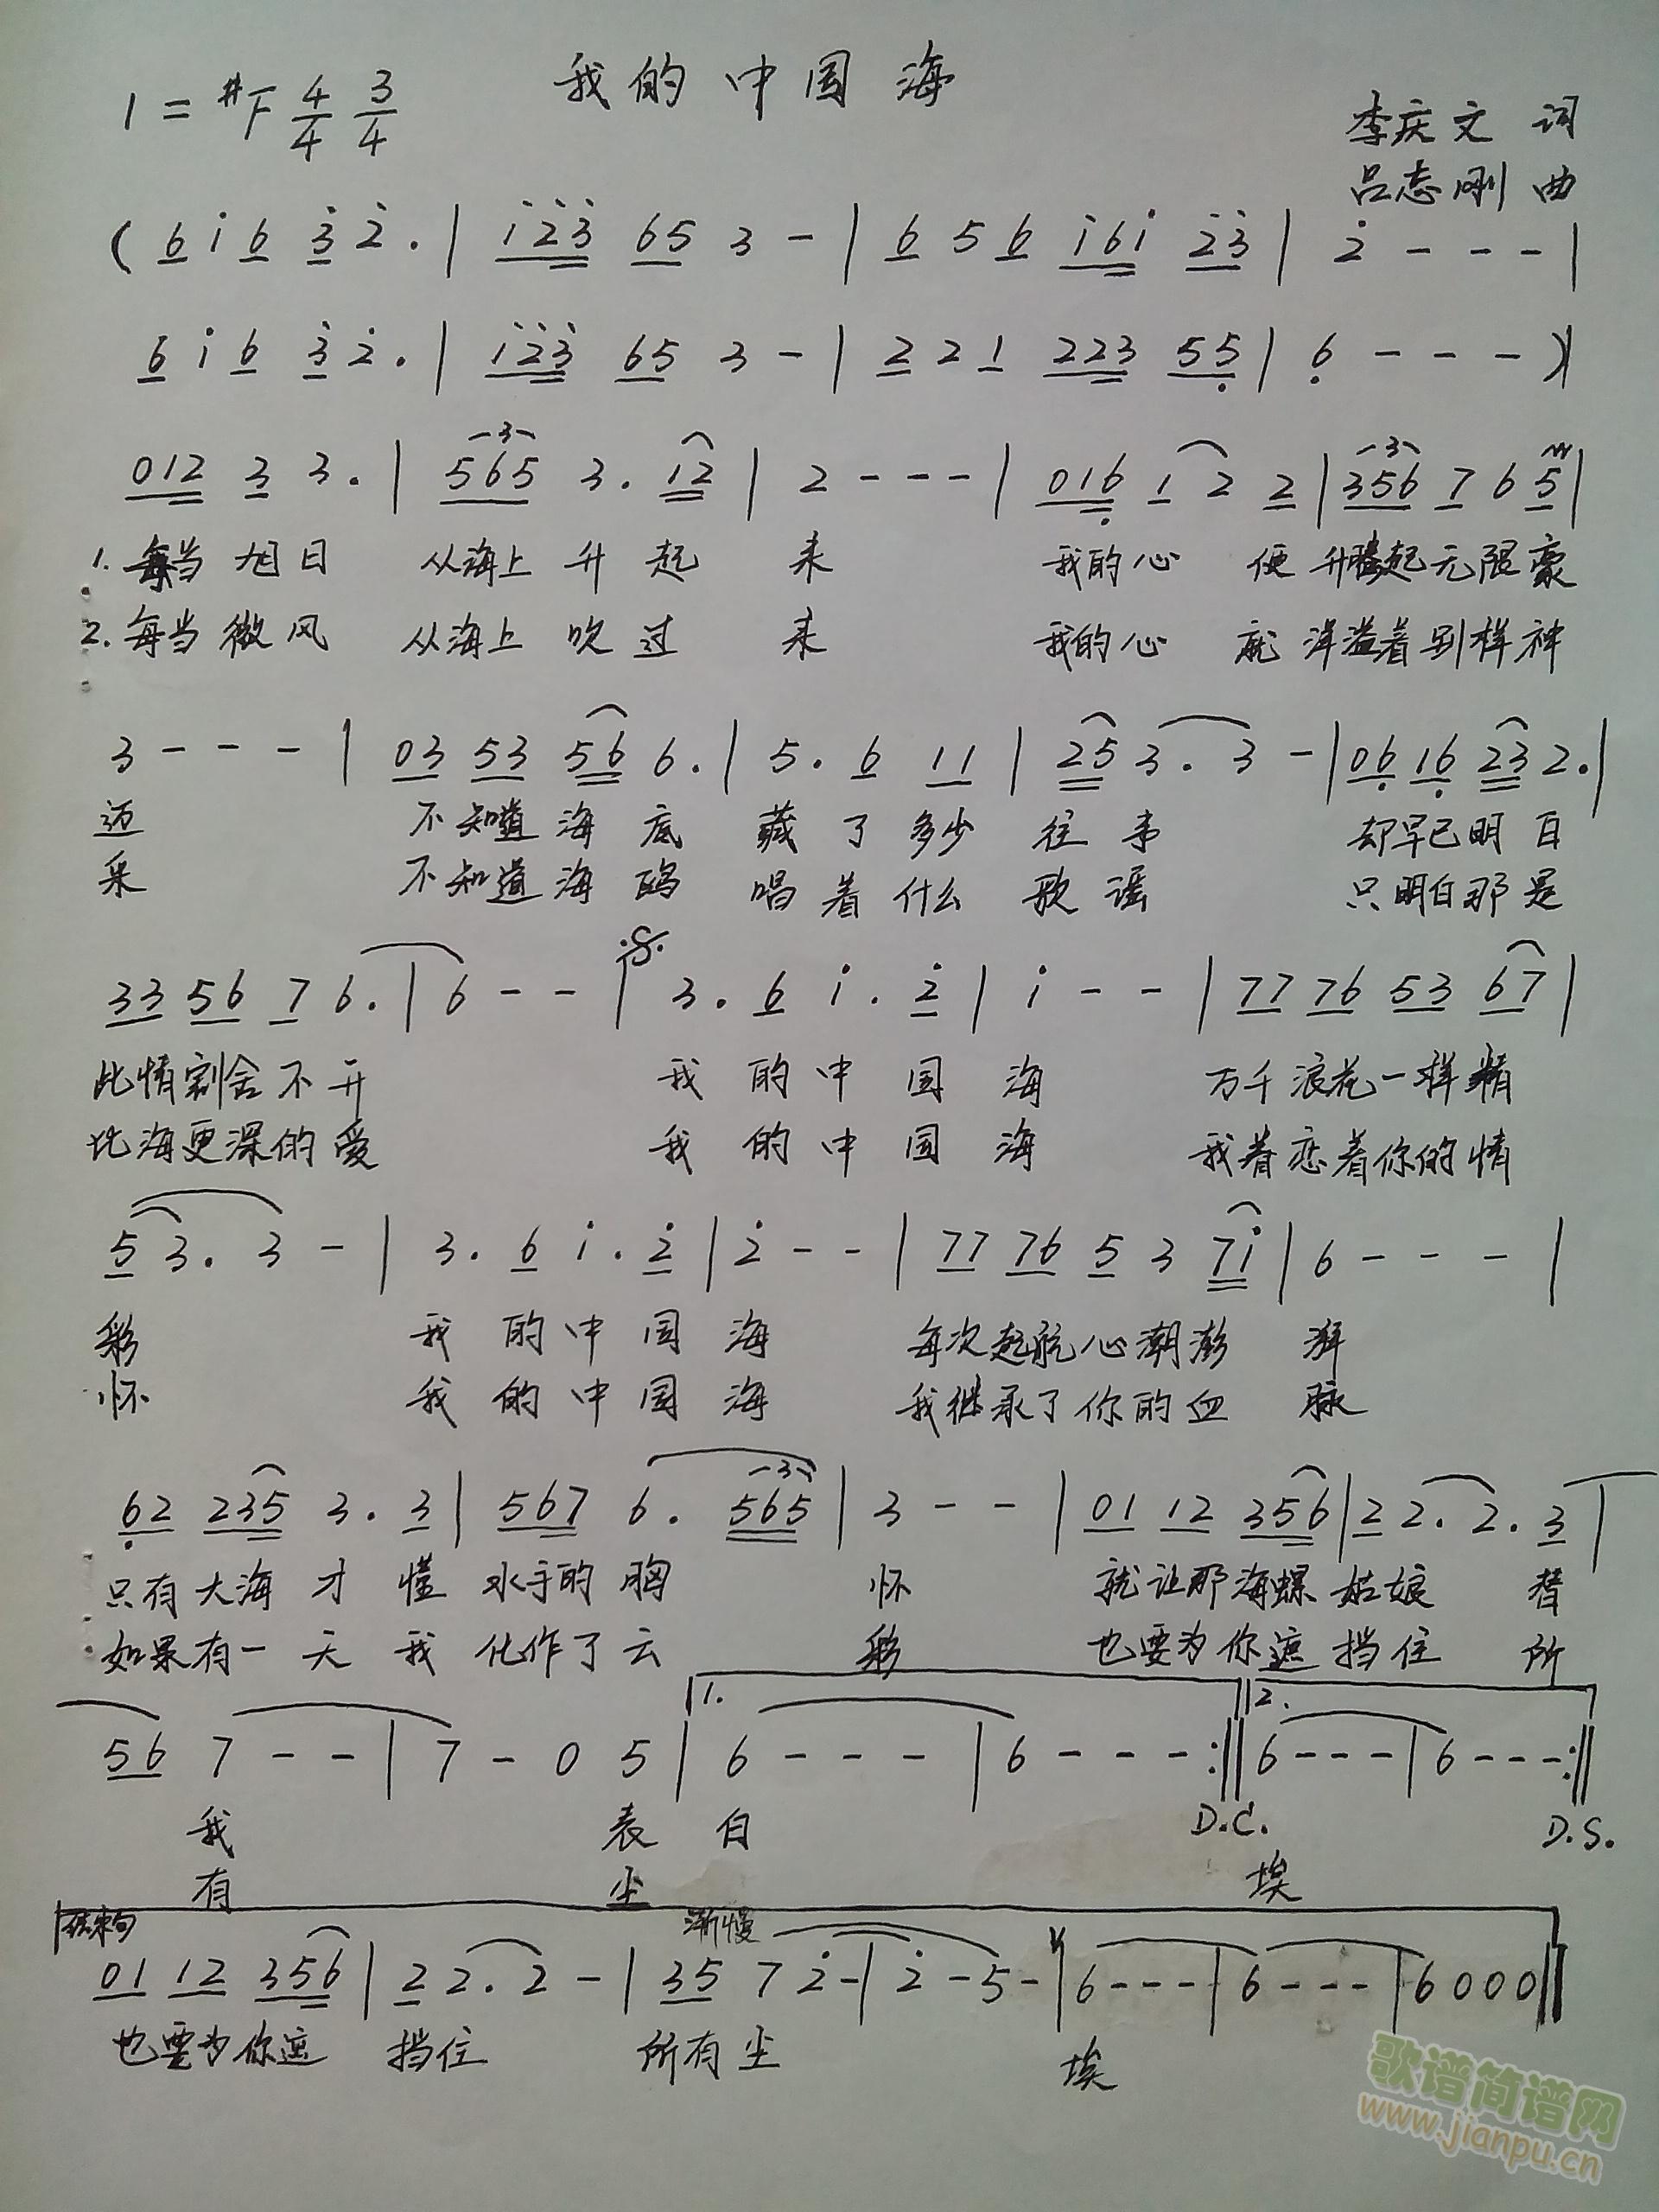 我的中国海
1=#F 4/4 3/4
李庆文 词
吕志刚 曲
( 6 i 6 3 2 . | i 2 3 6 5 3 - | 6 5 6 i 6 i 2 3 | 2 - - - |
6 i 6 3 2 . | i 2 3 6 5 3 - | 2 2 1 2 2 3 5 5 | 6 - - - )|
0 1 2 3 3 . | 5 6 5 3 . 1 2 | 2 - - - | 0 1 6 1 2 2 | 3 5 6 7 6 5 |
1. 每当 旭日 从海上 升 起 来 我的心 便 升腾起无限豪
2. 每当 微风 从海上 吹 过 来 我的心 就 洋溢着别样神
3 - - - | 0 3 5 3 5 6 6 . | 5 . 6 1 1 | 2 5 3 . 3 - | 0 6 1 6 2 3 2 . |
迈 不知道海底 藏了多少 往事 却早已明白
采 不知道海鸥 唱着什么 歌谣 只明白那是
3 3 5 6 7 6 . | 6 - - | 3 . 6 i . 2 | i - - | 7 7 7 6 5 3 6 7 |
此情割舍不开 我的中国海 万千浪花一样精
比海更深的爱 我的中国海 我眷恋着你的情
5 3 . 3 - | 3 . 6 i . 2 | 2 - - | 7 7 7 6 5 3 7 i | 6 - - - |
彩 我的中国海 每次起航心潮澎 湃
怀 我的中国海 我继承了你的血 脉
6 2 2 3 5 3 . 3 | 5 6 7 6 . 5 6 5 | 3 - - | 0 1 1 2 3 5 6 | 2 2 . 2 . 3 |
只有大海才懂 水手的胸 怀 就让那海螺姑娘 替
如果有一天我 化作了云 彩 也要为你遮挡住 所
5 6 7 - - | 7 - 0 5 | 1. 6 - - - | 6 - - - :|| 2. 6 - - - | 6 - - - :||
我 表 白 D.C. D.S.
有 尘 埃
结束句 渐慢
0 1 1 2 3 5 6 | 2 2 . 2 - | 3 5 7 2 - | 2 - 5 - | 6 - - - | 6 - - - | 6 0 0 0 ||
也要为你遮 挡住 所有尘 埃
歌谱简谱网
www.jianpu.cn